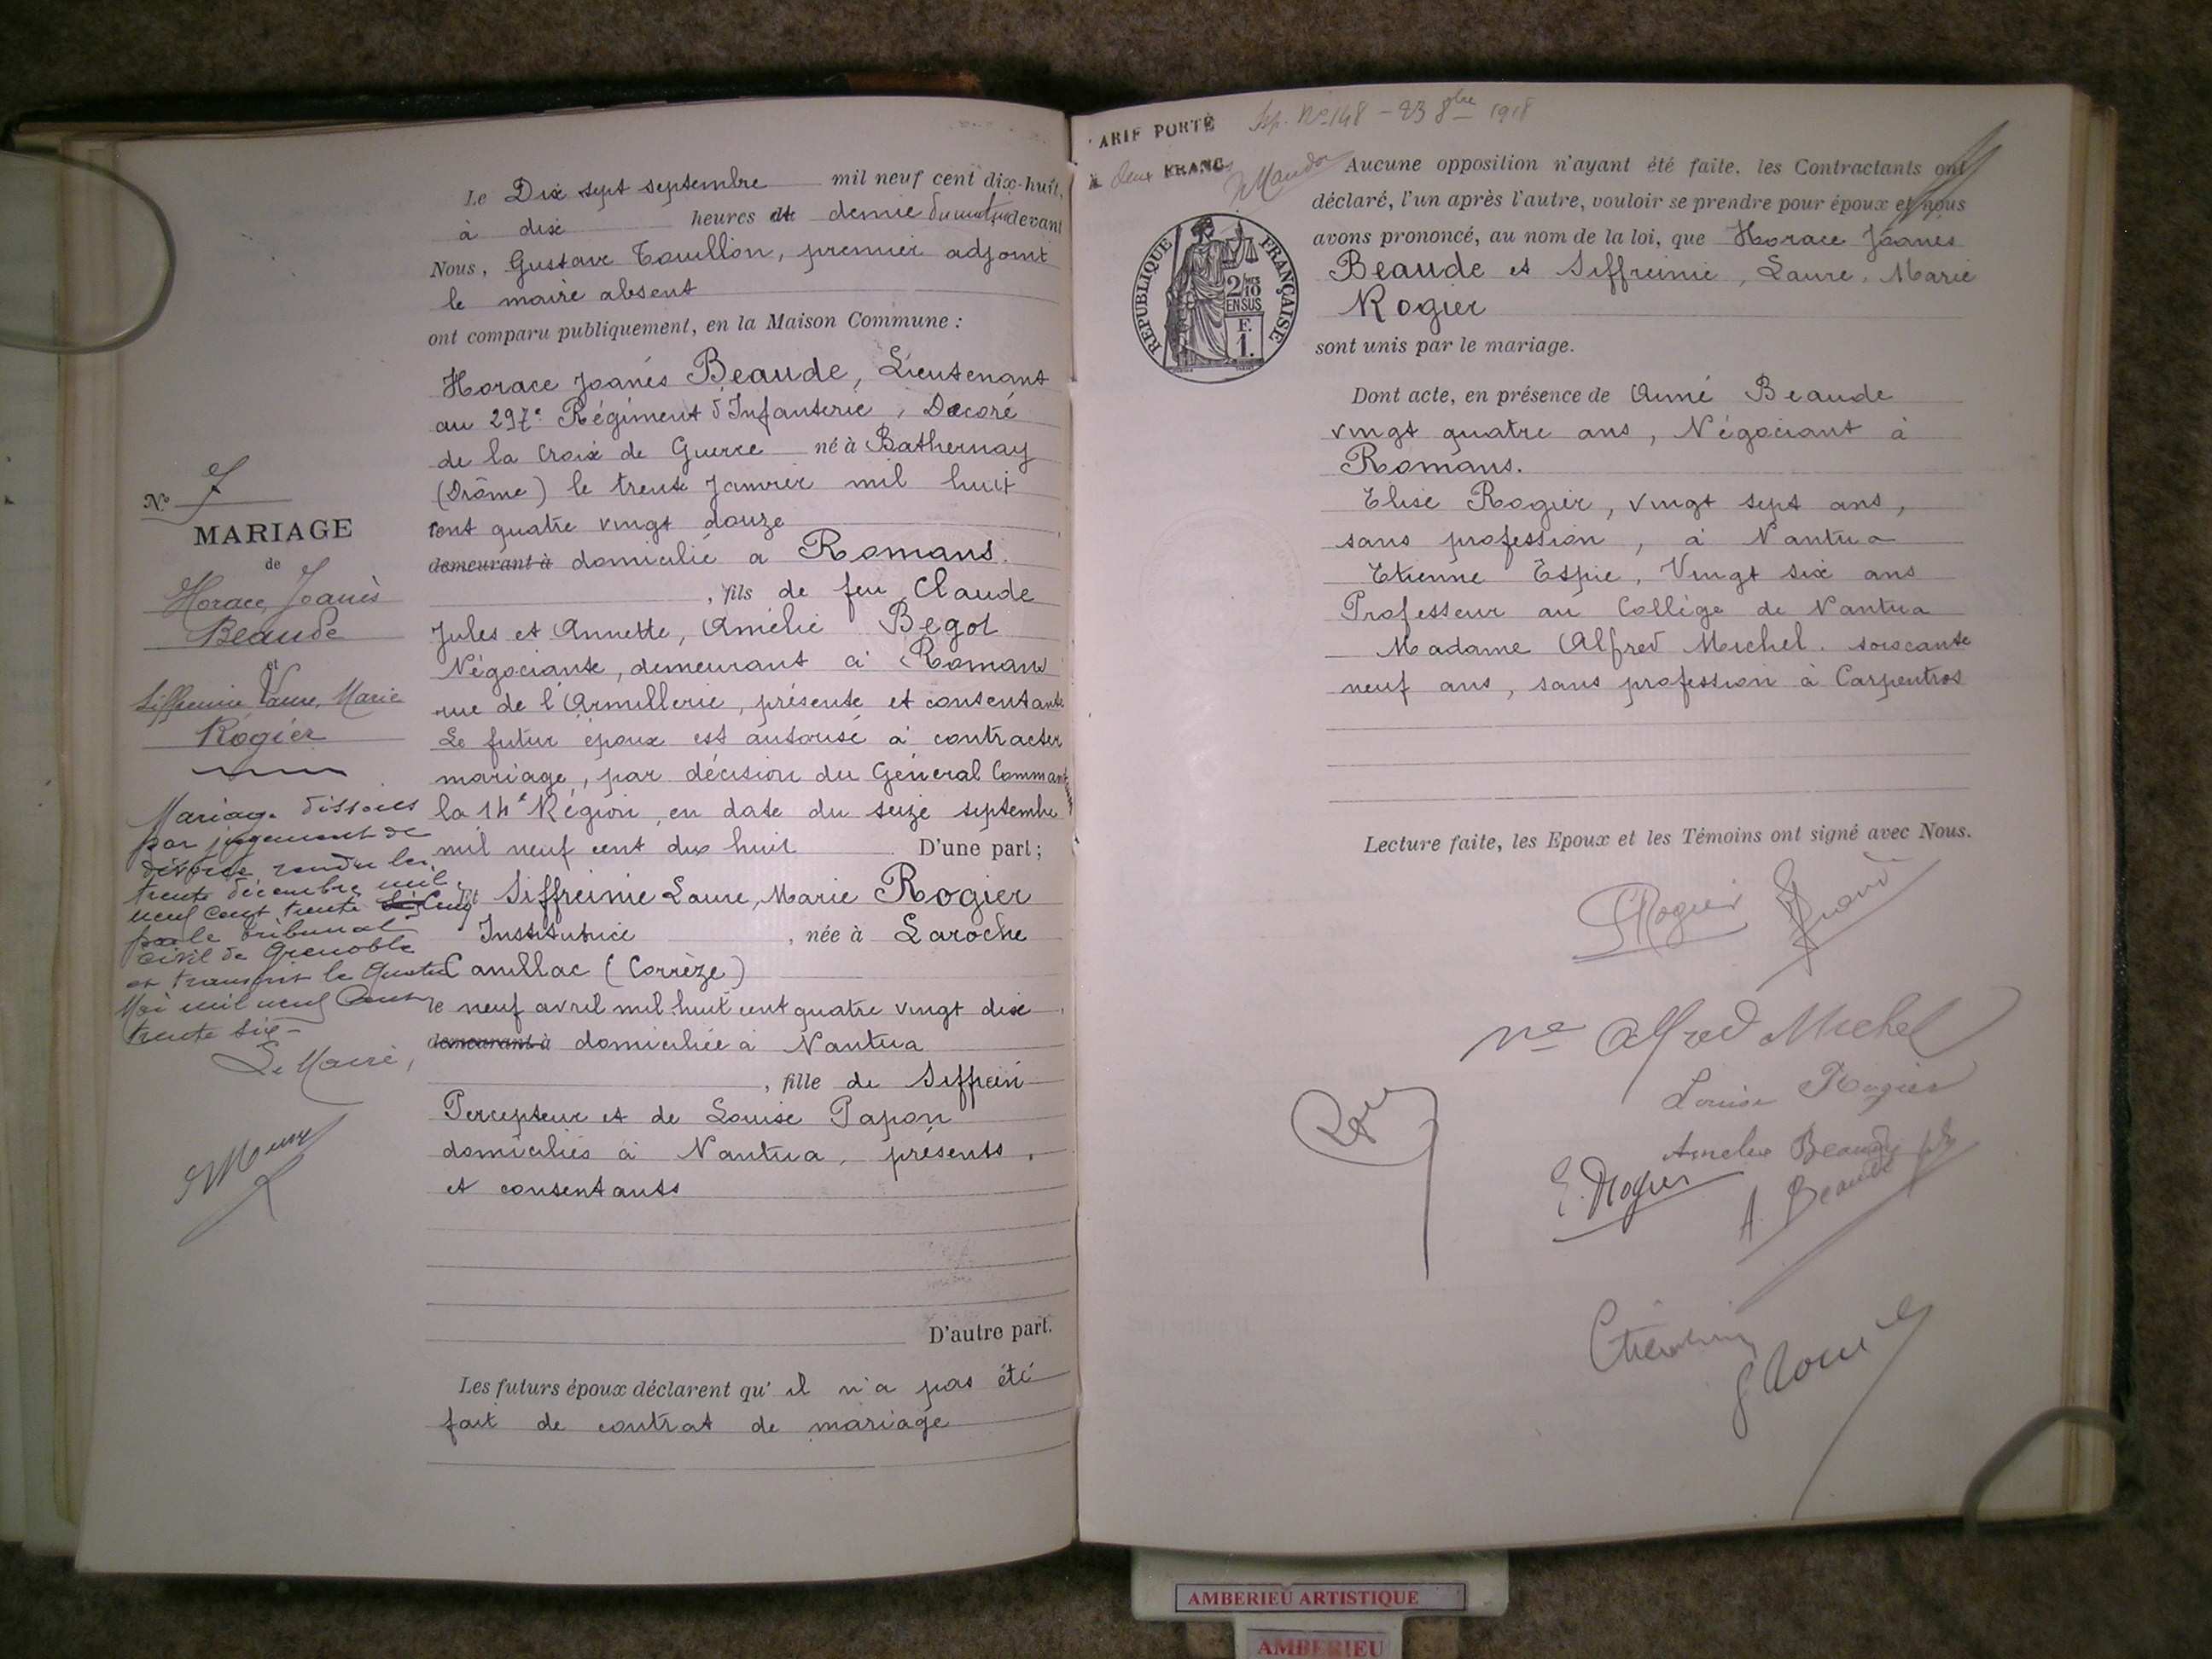 Le Dix sept septembre mil neuf cent dix-huit,
à dix heures et demie du matin devant
Nous, Gustave Touillon, premier adjoint
le maire absent
ont comparu publiquement, en la Maison Commune :
Horace Joanés Beaude, Lieutenant
au 297e Régiment d'Infanterie, Décoré
de la Croix de Guerre né à Bathernay
(Drôme) le trente Janvier mil huit
cent quatre vingt douze
demeurant à domicilié a Romans.
, fils de feu Claude
Jules et Annette, Amélie Begot
Négociante, demeurant à Romans
rue de l'Armillerie, présente et consentante
Le futur époux est autorisé à contracter
mariage, par décision du Général Commandant
la 14e Région, en date du seize septembre
mil neuf cent dix huit D'une part ;
Et Siffreinie Laure, Marie Rogier
Institutrice, née à Laroche
Canillac (Corrèze)
le neuf avril mil huit cent quatre vingt dix
demeurant à domiciliée à Nantua
, fille de Siffrein
Percepteur et de Louise Papon
domiciliés à Nantua, présents,
et consentants
D'autre part.
Les futurs époux déclarent qu'il n'a pas été
fait de contrat de mariage
No 7
MARIAGE
de
Horace, Joanès
Beaude
et
Siffreinie Laure, Marie
Rogier
Mariage dissous
par jugement de
divorce rendu le
trente décembre mil
neuf cent trente cinq
par le tribunal
civil de Grenoble
et transcrit le quatre
Mai mil neuf Cent
trente six -
Le Maire,
ARIF PORTÉ
À deux FRANCS
No 148 - 23 8bre 1918
RÉPUBLIQUE FRANÇAISE
2/10
EN SUS
F.
1.
Aucune opposition n'ayant été faite, les Contractants ont
déclaré, l'un après l'autre, vouloir se prendre pour époux et nous
avons prononcé, au nom de la loi, que Horace Joanès
Beaude et Siffreinie, Laure, Marie
Rogier
sont unis par le mariage.
Dont acte, en présence de Aimé Beaude
vingt quatre ans, Négociant à
Romans.
Elise Rogier, vingt sept ans,
sans profession, à Nantua
Etienne Espie, Vingt six ans
Professeur au Collège de Nantua
Madame Alfred Michel. soixante
neuf ans, sans profession à Carpentras
Lecture faite, les Epoux et les Témoins ont signé avec Nous.
Rogier
Alfred Michel
Louise Rogier
Amelie Beaude
E. Rogier
A. Beaude
AMBERIEU ARTISTIQUE
AMBERIEU